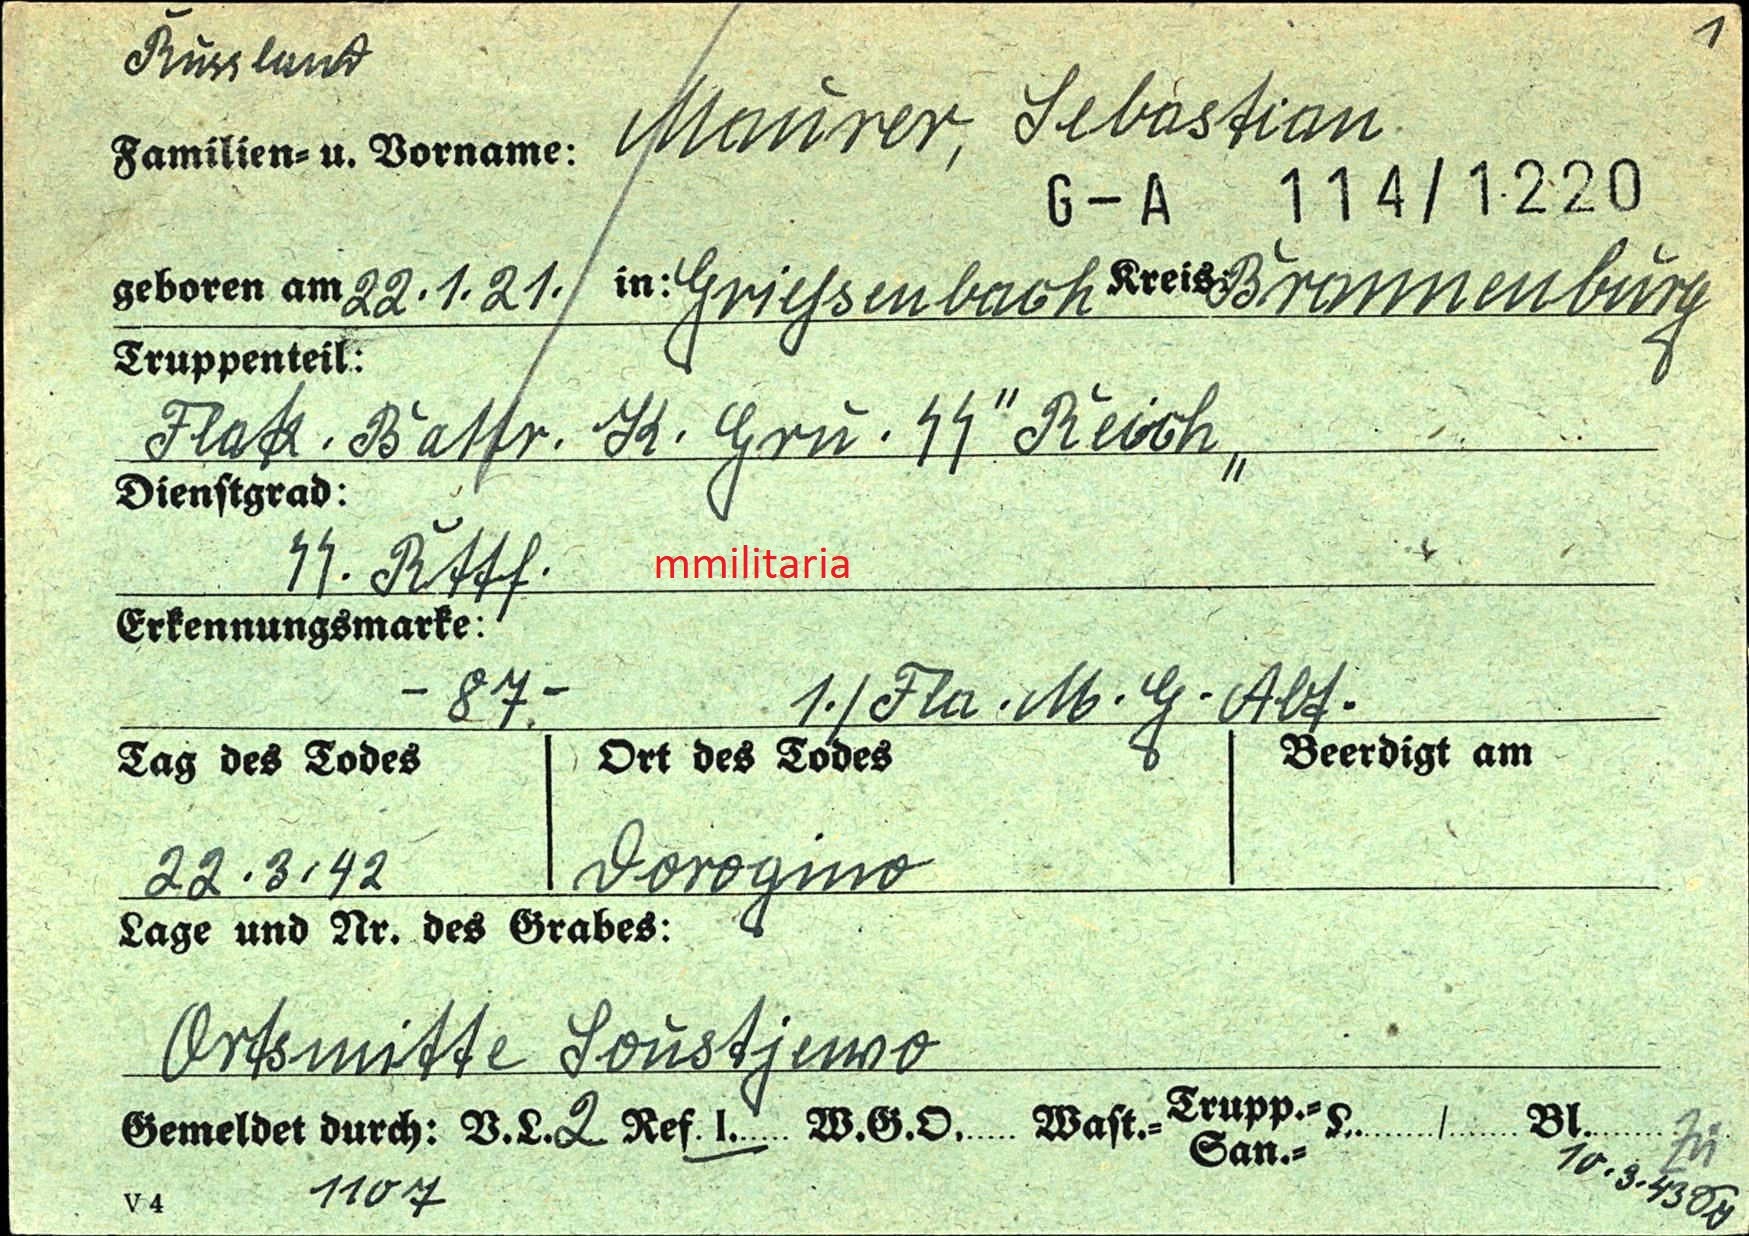 Russland
1
Familien= u. Vorname: Maurer, Sebastian
G-A 114/1220
geboren am 22.1.21. in: Griessenbach Kreis: Brannenburg
Truppenteil:
Flak. Battr. K. Gru. ᛋᛋ "Reich"
Dienstgrad:
ᛋᛋ. Rttf.
mmilitaria
Erkennungsmarke:
- 87 - 1./Fla. M. G. Abt.
Tag des Todes Ort des Todes Beerdigt am
22.3.42 Dorogino
Lage und Nr. des Grabes:
Ortsmitte Soustjewo
Gemeldet durch: V.L. 2 Ref. I. W.G.O. Wast.= Trupp.= San.= L. / Bl.
10.3.43
V 4 1107